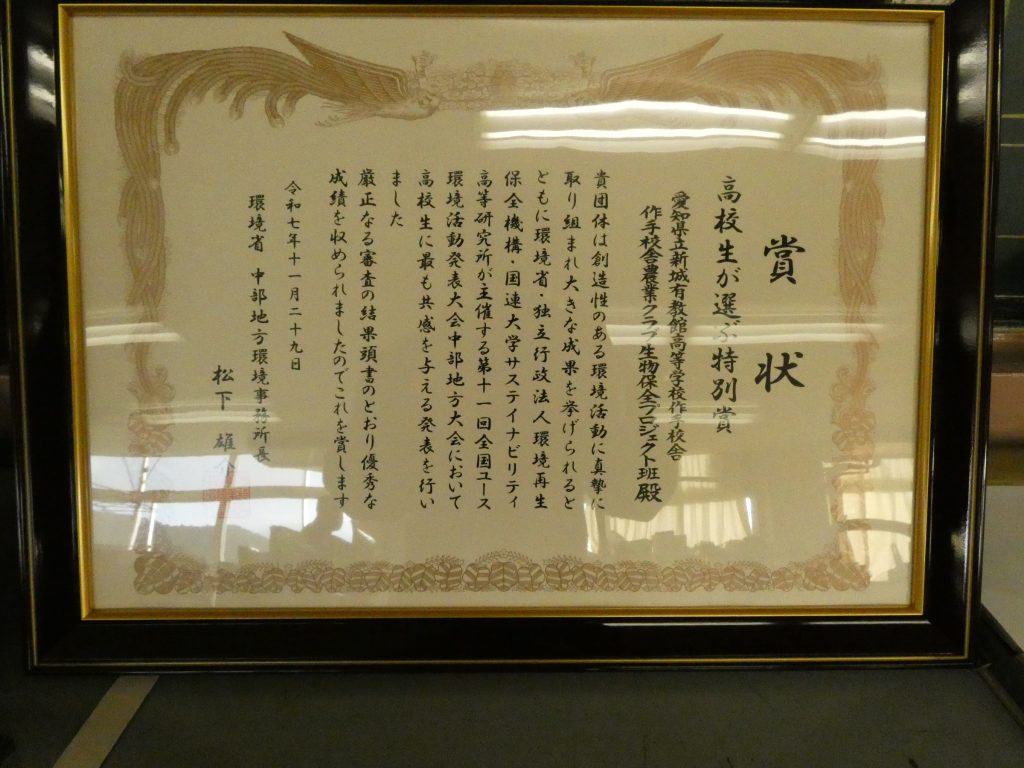 賞状
高校生が選ぶ特別賞
愛知県立新城有教館高等学校作手校舎
作手校舎農業クラブ生物保全プロジェクト班 殿
貴団体は創造性のある環境活動に真摯に
取り組まれ大きな成果を挙げられると
ともに環境省・独立行政法人環境再生
保全機構・国連大学サステイナビリティ
高等研究所が主催する第十一回全国ユース
環境活動発表大会中部地方大会において
高校生に最も共感を与える発表を行い
ました
厳正なる審査の結果頭書のとおり優秀な
成績を収められましたのでこれを賞します
令和七年十一月二十九日
環境省 中部地方環境事務所長
松下 雄